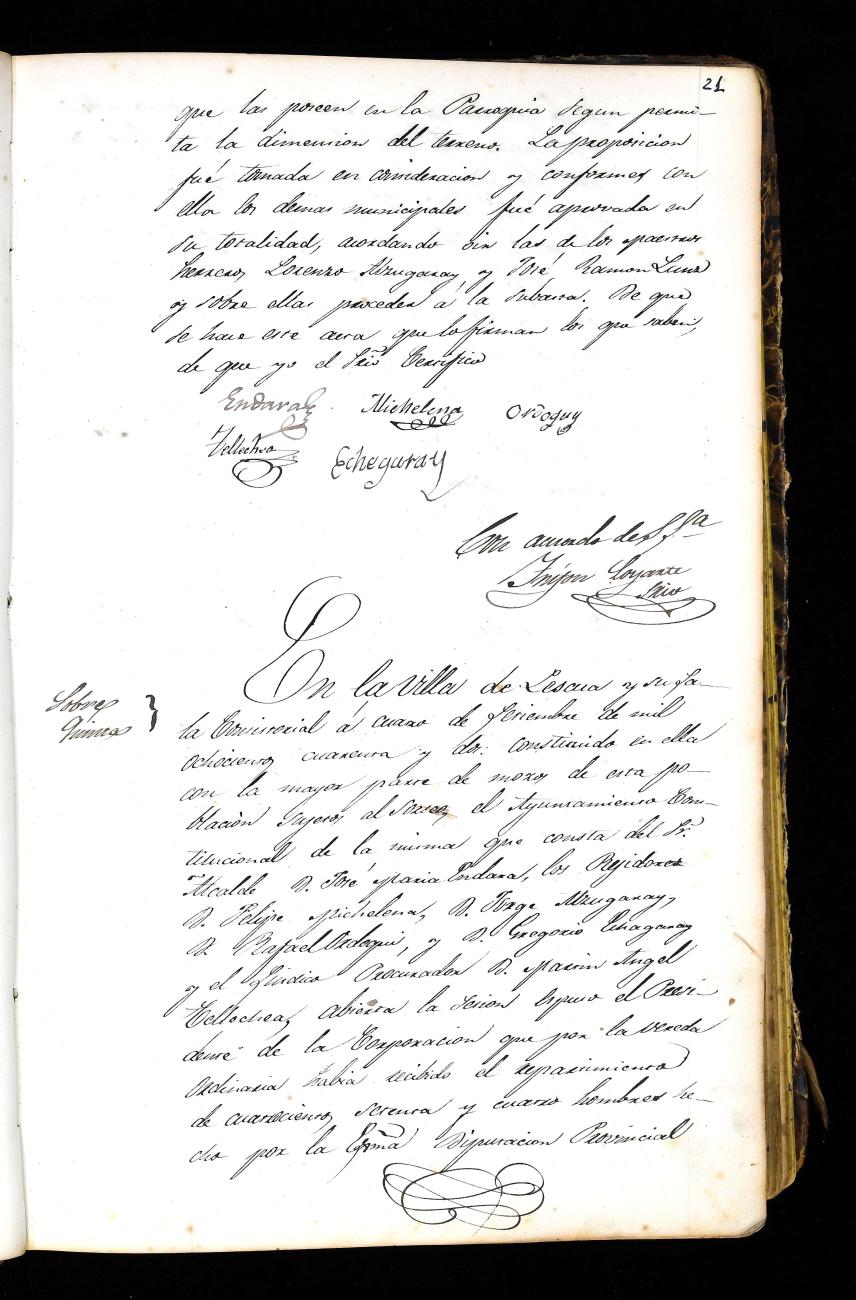 21
que las poseen en la Parroquia segun permi-
ta la dimension del terreno. La proposicion
fué tomada en consideracion y conformes con
ella los demas municipales fué aprovada en
su totalidad, acordando oir las de los maestros
herreros, Lorenzo Alzugaray, y José Ramon
y sobre ellas proceder á la subasta. De que
se hace este acta que lo firman los que saben,
de que yo el Srio Certifico
Endara Michelena Ordoguy
Tellechea Echegaray
Con acuerdo de S Sª
Loyarte
Srio
Sobre
Quintas
En la Villa de Lesaca y su Sa-
la Consistorial á cuatro de Setiembre de mil
ochocientos cuarenta y dos: constituido en ella
con la mayor parte de mozos de esta po-
blación sujetos al sorteo, el Ayuntamiento Cons-
titucional de la misma que consta del Sr.
Alcalde D. José Maria Endara, los Rejidores
D. Felipe Michelena, D. Jorge Alzugaray,
D. Rafael Ordoqui, y D. Gregorio Echagaray
y el Sindico Procurador D. Martin Angel
Tellechea, abierta la sesion espuso el Presi-
dente de la Corporacion que por la vereda
ordinaria habia recibido el repartimiento
de cuatrocientos setenta y cuatro hombres he-
cho por la Exma Diputacion Provincial